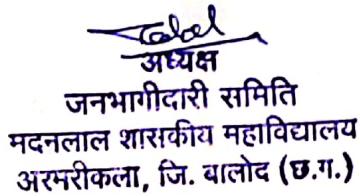 अध्यक्ष
जनभागीदारी समिति
मदनलाल शासकीय महाविद्यालय
अरमरीकला, जि. बालोद (छ.ग.)